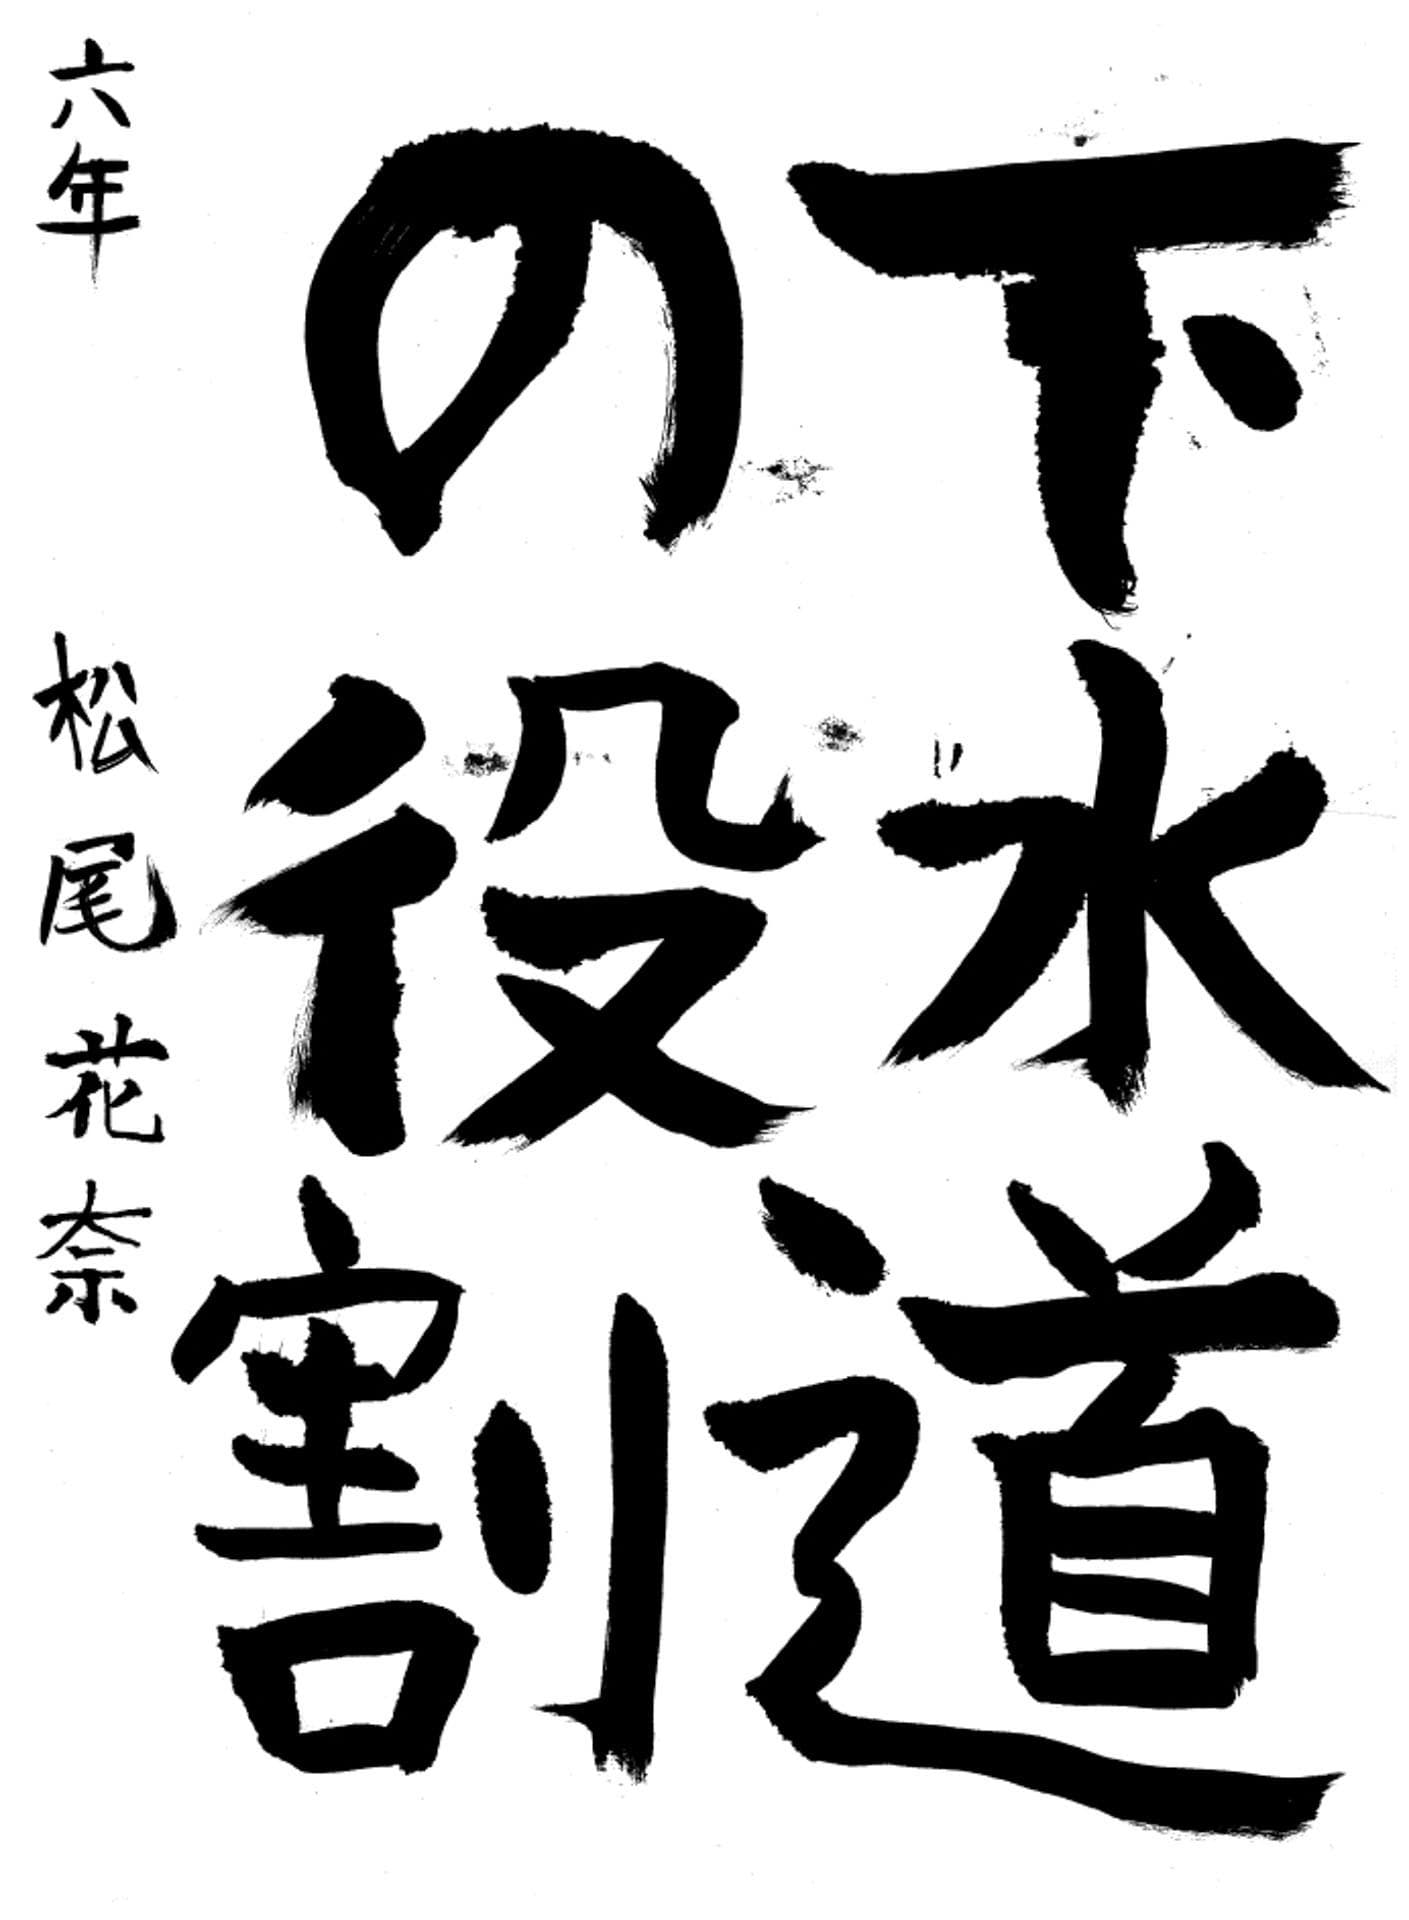 下水道
の役割
六年 松尾花奈